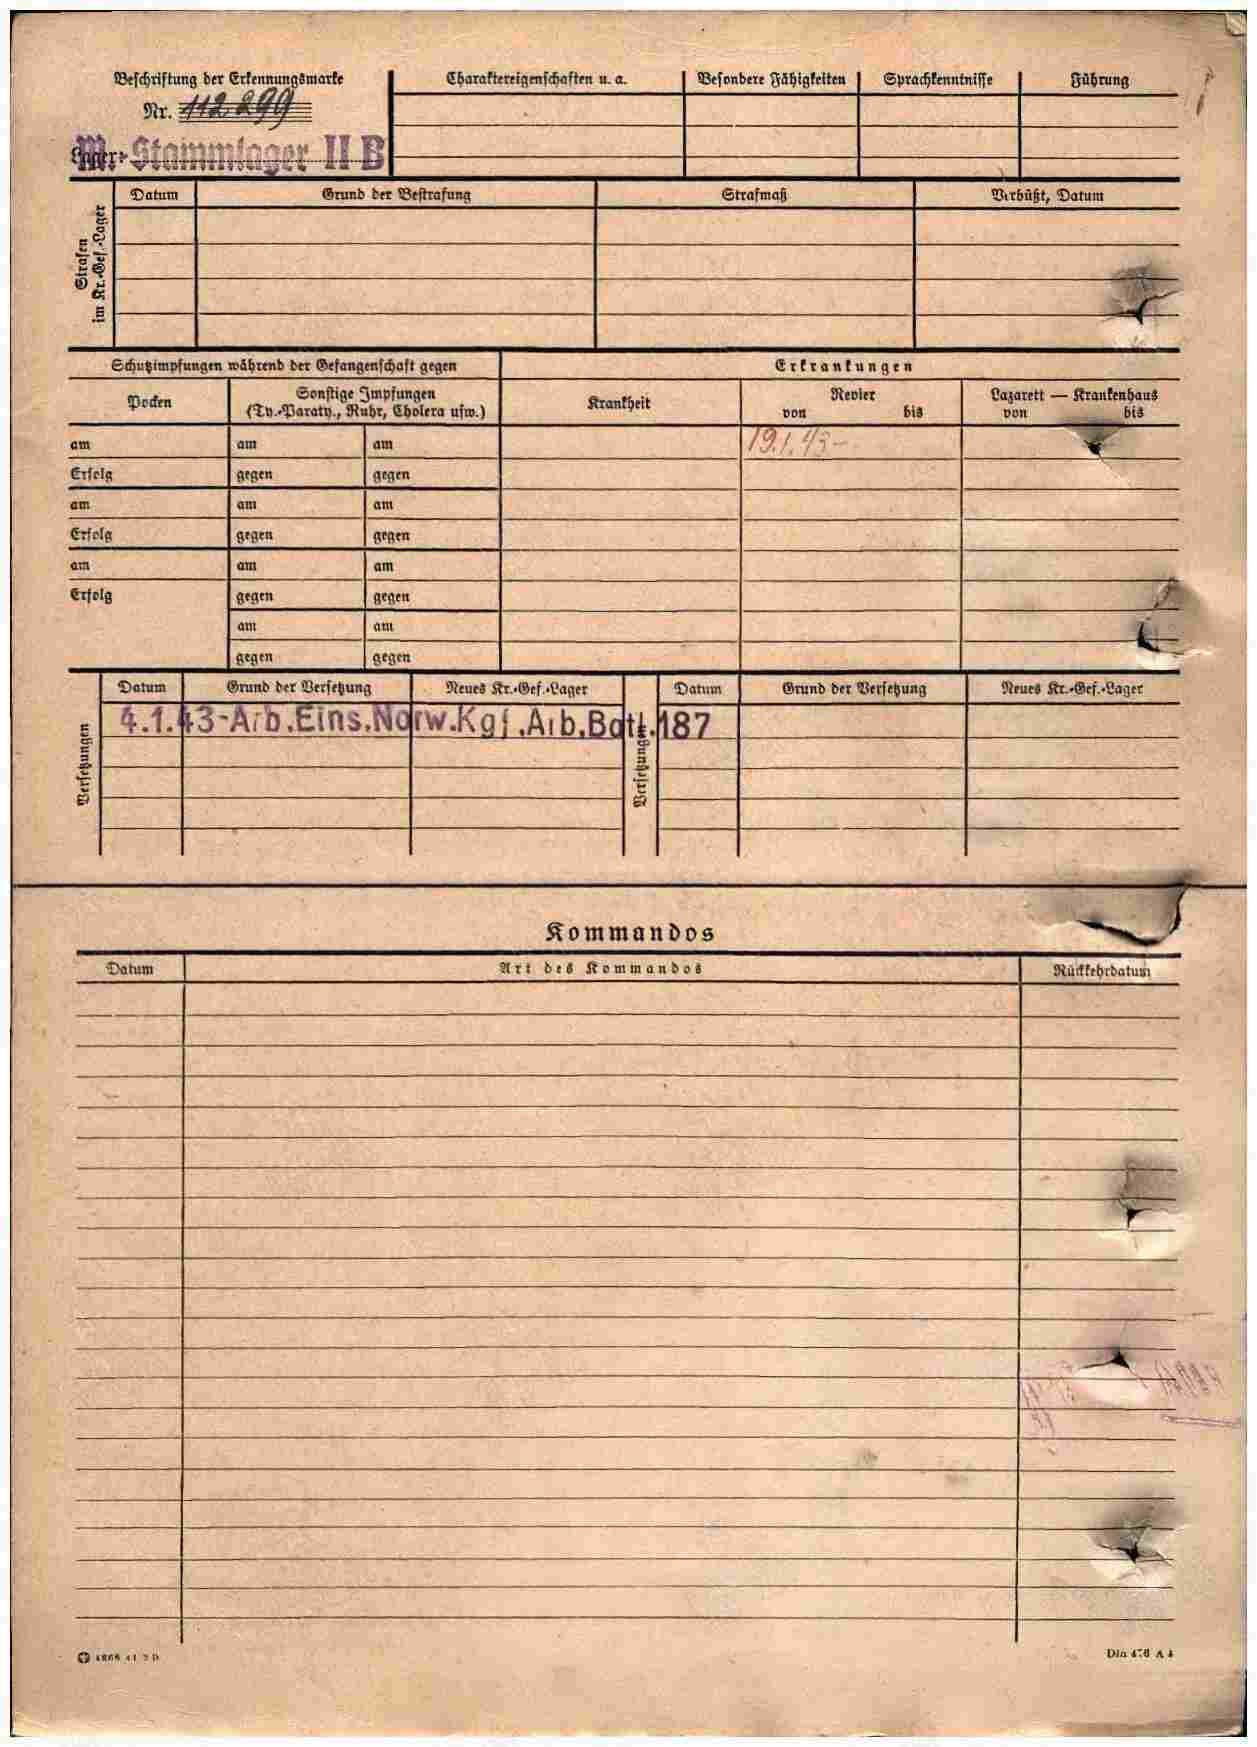 Beschriftung der Erkennungsmarke
Nr. 112299
Lager: M.-Stammlager II B
Charaktereigenschaften u. a.
Besondere Fähigkeiten
Sprachkenntnisse
Führung
Strafen
im Kr.-Gef.-Lager
Datum
Grund der Bestrafung
Strafmaß
Verbüßt, Datum
Schutzimpfungen während der Gefangenschaft gegen
Erkrankungen
Pocken
Sonstige Impfungen
(Ty.-Paraty., Ruhr, Cholera usw.)
Krankheit
Revier
von bis
Lazarett — Krankenhaus
von bis
am am am 19.1.43-
Erfolg gegen gegen
am am am
Erfolg gegen gegen
am am am
Erfolg gegen gegen
am am
gegen gegen
Versetzungen
Datum Grund der Versetzung Neues Kr.-Gef.-Lager
Versetzungen
Datum Grund der Versetzung Neues Kr.-Gef.-Lager
4.1.43-Arb.Eins.Norw.Kgf.Arb.Batl.187
Kommandos
Datum Art des Kommandos Rückkehrdatum
Din 476 A 4